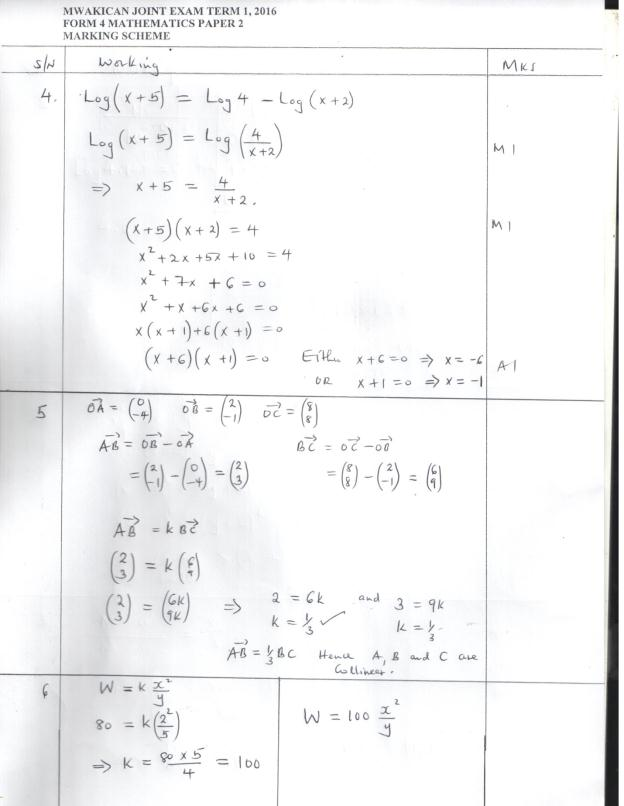 MWAKICAN JOINT EXAM TERM 1, 2016
FORM 4 MATHEMATICS PAPER 2
MARKING SCHEME
S/N Working MKS
4. Log(x+5) = Log 4 – Log(x+2)
Log(x+5) = Log(4/(x+2)) M1
⇒ x+5 = 4/(x+2).
(x+5)(x+2) = 4 M1
x²+2x+5x+10 = 4
x²+7x+6 = 0
x²+x+6x+6 = 0
x(x+1)+6(x+1) = 0
(x+6)(x+1) = 0 Either x+6=0 ⇒ x=-6 A1
OR x+1=0 ⇒ x=-1
5 OA→ = (0 -4) OB→ = (2 -1) OC→ = (8 8)
AB→ = OB→ – OA→ BC→ = OC→ – OB→
= (2 -1) – (0 -4) = (2 3) = (8 8) – (2 -1) = (6 9)
AB→ = k BC→
(2 3) = k (6 9)
(2 3) = (6k 9k) ⇒ 2 = 6k and 3 = 9k
k = 1/3 ✓ k = 1/3.
AB→ = 1/3 BC Hence A, B and C are
Collinear.
6 W = k x²/y
80 = k(2²/5) W = 100 x²/y
⇒ k = 80 × 5/4 = 100